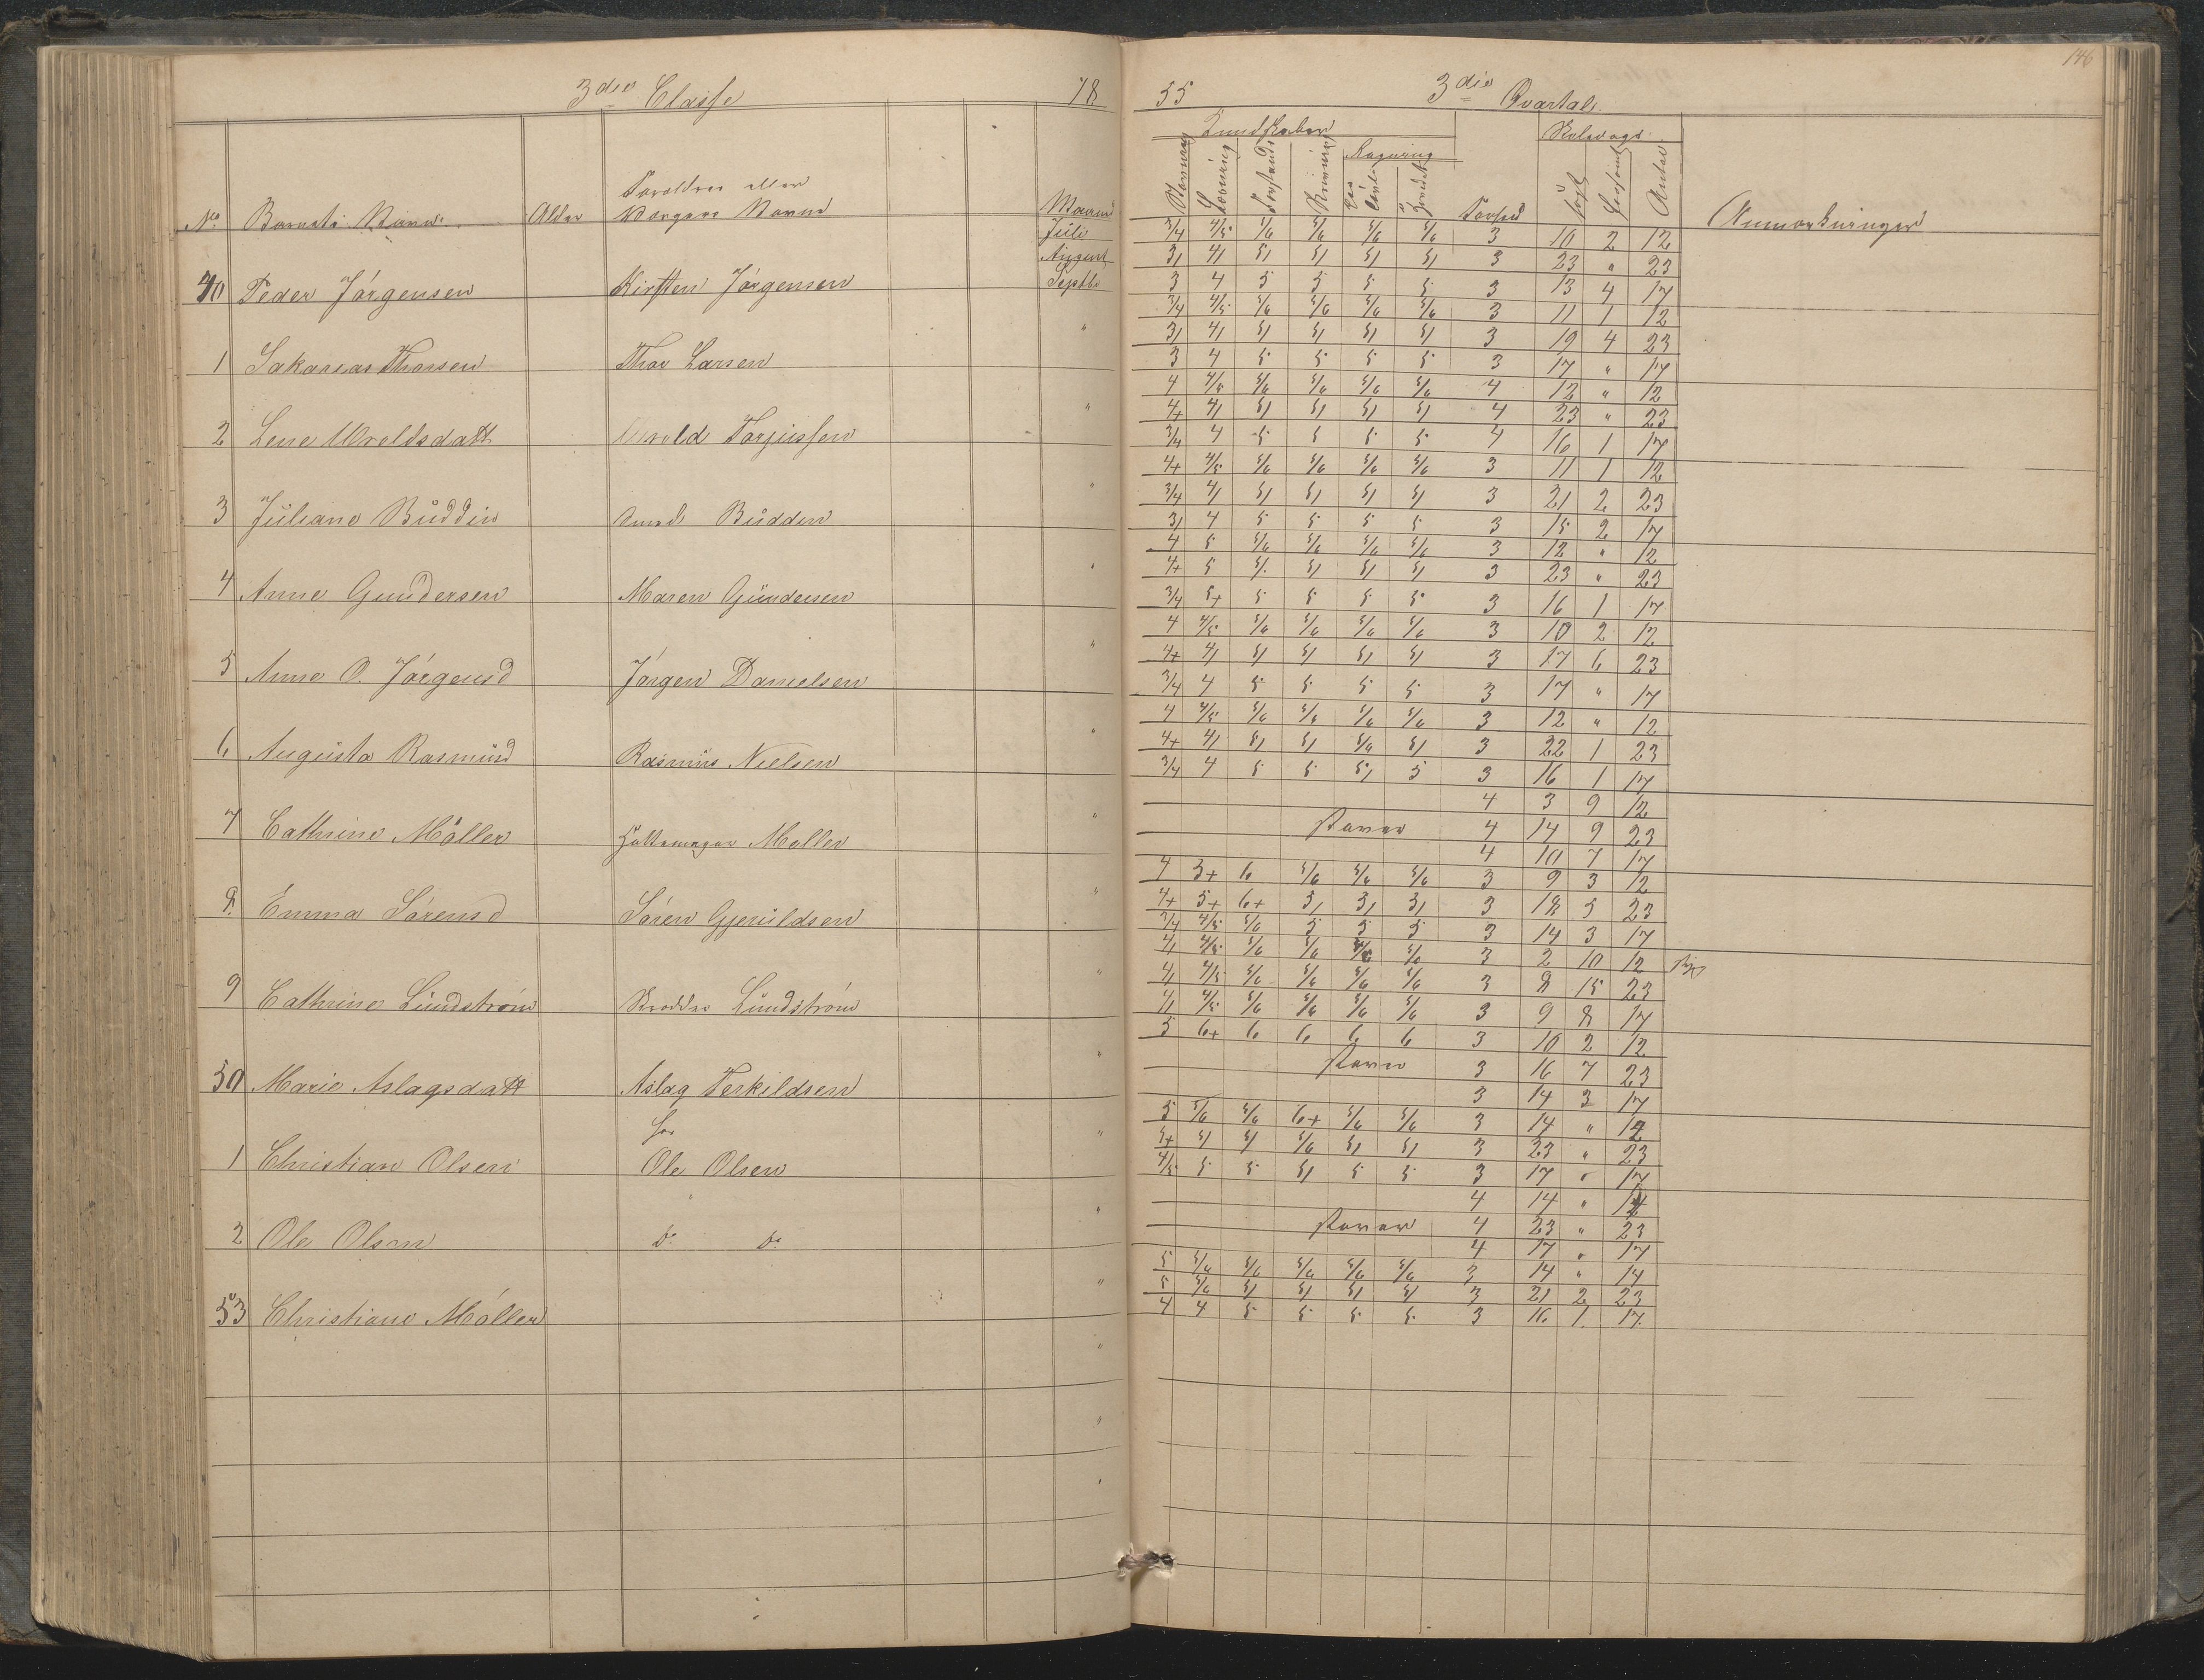 3die Classe 18
No. Barnets Navn Alder Forældres eller Værgers Navn Maaned
Juli
August
Septbr
40 Peder Jörgensen Kirsten Jörgensen
1 Sakarias Thorsen Thor Larsen "
2 Lene Uroldsdatt Urold Torjussen "
3 Juliane Budden Budden "
4 Anne Gundersen Maren Gundersen "
5 Anne O. Jörgensd Jörgen Danielsen "
6 Augusta Rasmusd Rasmus Nielsen "
7 Cathrine Möller Møller "
8 Emma Sörensd Sören Gjeruldsen "
9 Cathrine Lundström Lundström "
50 Marie Aslagsdatt Aslag Terkildsen "
1 Christian Olsen Ole Olsen "
2 Ole Olsen do do "
53 Christiane Möller "
146
55 3die Qvartal
Kundskaber Skoledage
Regning
Stavning Læsning Forstand Skrivning Tavle Hovedet Forhold Søgt Forsømt Antal Anmærkninger
3/4 4/5 5/6 5/6 5/6 5/6 3 10 2 12
3/ 4/ 5/ 5/ 5/ 5/ 3 23 " 23
3 4 5 5 5 5 3 13 4 17
3/4 4/5 5/6 5/6 5/6 5/6 3 11 1 12
3/ 4/ 5/ 5/ 5/ 5/ 3 19 4 23
3 4 5 5 5 5 3 17 " 17
4 4/5 5/6 5/6 5/6 5/6 4 12 " 12
4+ 4/ 5/ 5/ 5/ 5/ 4 23 " 23
3/4 4 5 5 5 5 4 16 1 17
4+ 4/5 5/6 5/6 5/6 5/6 3 11 1 12
3/4 4/ 5/ 5/ 5/ 5/ 3 21 2 23
3/ 4 5 5 5 5 3 15 2 17
4 5 5/6 5/6 5/6 5/6 3 12 " 12
4+ 5 5/ 5/ 5/ 5/ 3 23 " 23
3/4 5+ 5 5 5 5 3 16 1 17
4 4/5 5/6 5/6 5/6 5/6 3 10 2 12
4+ 4/ 5/ 5/ 5/ 5/ 3 17 6 23
3/4 4 5 5 5 5 3 17 " 17
4 4/5 5/6 5/6 5/6 5/6 3 12 " 12
4+ 4/ 5/ 5/ 5/6 5/ 3 22 1 23
3/4 4 5 5 5/ 5 3 16 1 17
4 3 9 12
staver 4 14 9 23
4 10 7 17
4 3+ 6 5/6 5/6 5/6 3 9 3 12
4+ 5+ 6+ 5/ 5/ 5/ 3 18 5 23
3/4 4/5 5/6 5 5 5 3 14 3 17
4/ 4/5 5/6 5/6 5/6 5/6 3 2 10 12 syg
4/ 4/5 5/6 5/6 5/6 5/6 3 8 15 23
4/ 4/5 5/6 5/6 5/6 5/6 3 9 8 17
5 6+ 6 6 6 6 3 10 2 12
staver 3 16 7 23
3 14 3 17
5 5/6 5/6 6+ 5/6 5/6 3 14 " 14
5+ 5/ 5/ 5/6 5/ 5/ 3 23 " 23
4/5 5 5 5/ 5 5 3 17 " 17
4 14 " 14
staver 4 23 " 23
4 17 " 17
5 5/6 5/6 5/6 5/6 5/6 3 14 " 14
5 5/6 5/ 5/ 5/ 5/ 3 21 2 23
4 4 5 5 5 5 3 16 1 17